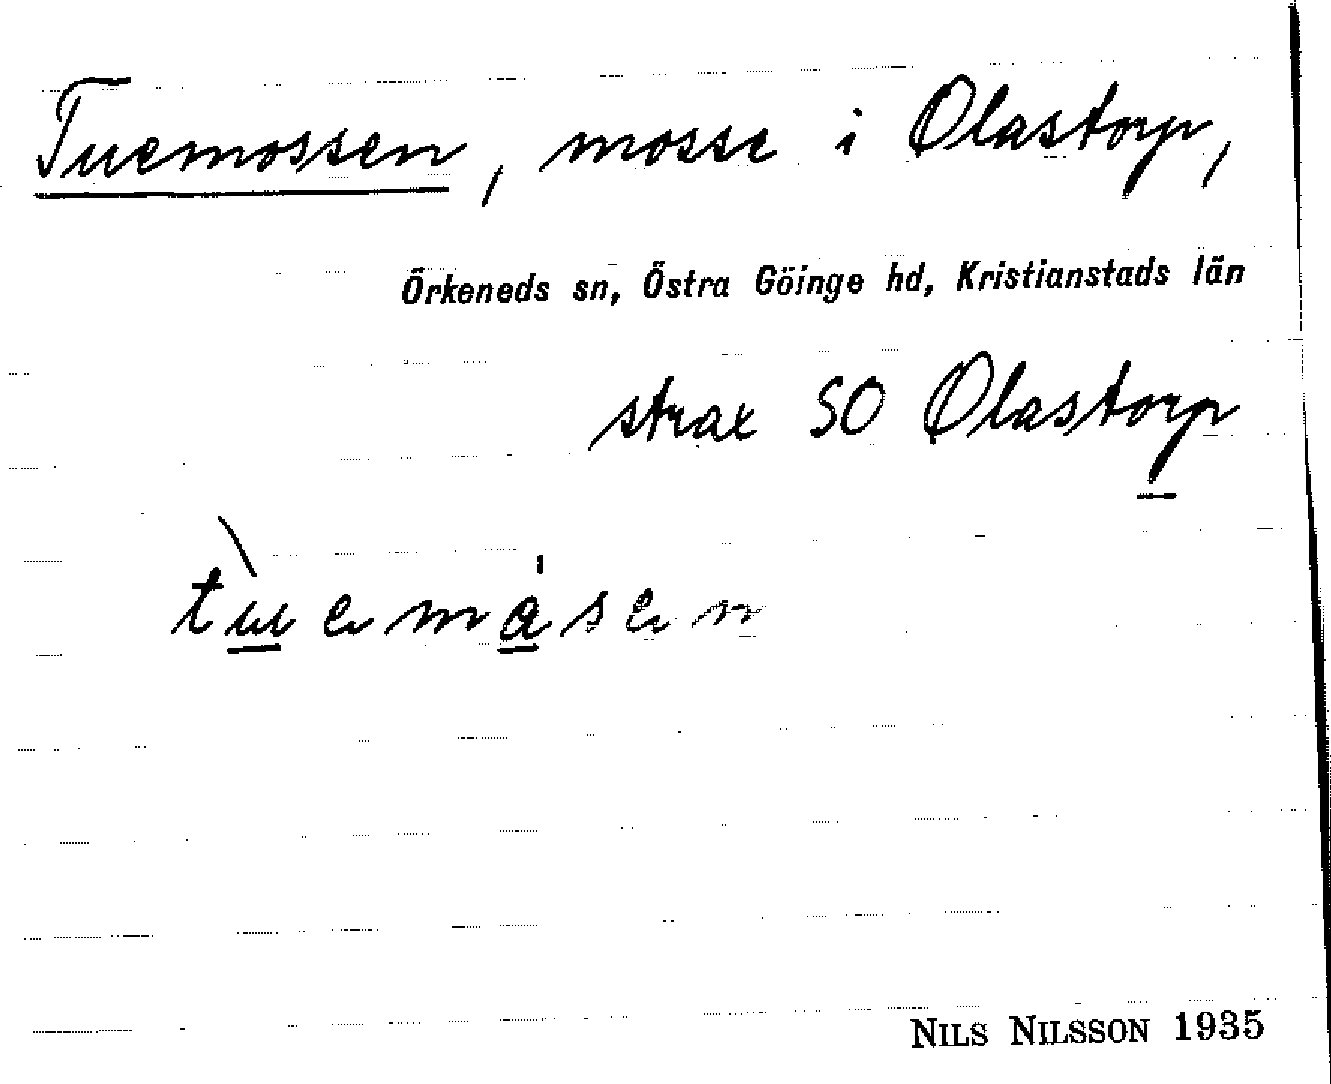 Tuemossen, mosse i Olastorp,
Örkeneds sn, Östra Göinge hd, Kristianstads län
strax SO Olastorp
tùemåsen
NILS NILSSON 1935